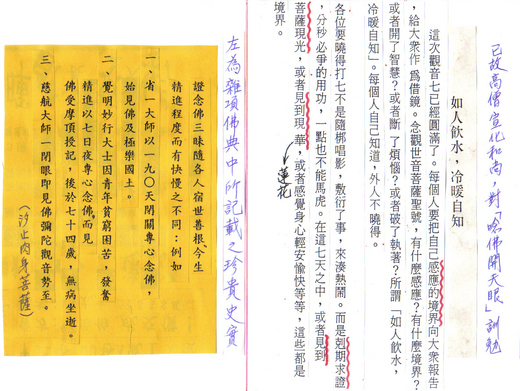 已故高僧宣化和尚,對「唸佛開天眼」訓勉
如人飲水,冷暖自知
這次觀音七已經圓滿了。每個人要把自己感應的境界向大衆報告
,給大衆作爲借鏡。念觀世音菩薩聖號,有什麼感應?有什麼境界?
或者開了智慧?或者斷了煩惱?或者破了執著?所謂「如人飲水,
冷暖自知」。每個人自己知道,外人不曉得。
各位要曉得打七不是隨梆唱影,敷衍了事,來湊熱鬧。而是剋期求證
,分秒必爭的用功,一點也不能馬虎。在這七天之中,或者見到
菩薩現光,或者見到現華,或者感覺身心輕安愉快等等,這些都是
境界。
蓮花
左為雜項佛典中所記載之珍貴史實
證念佛三昧隨各人宿世善根今生
精進程度而有快慢之不同:例如
一、省一大師以一九〇天閉關專心念佛,
始見佛及極樂國土。
二、覺明妙行大士因青年貧窮困苦,發奮
精進以七日夜專心念佛而見
佛受摩頂授記,後於七十四歲,無病坐逝。
三、慈航大師一閉眼即見佛彌陀觀音勢至。
(汐止肉身菩薩)